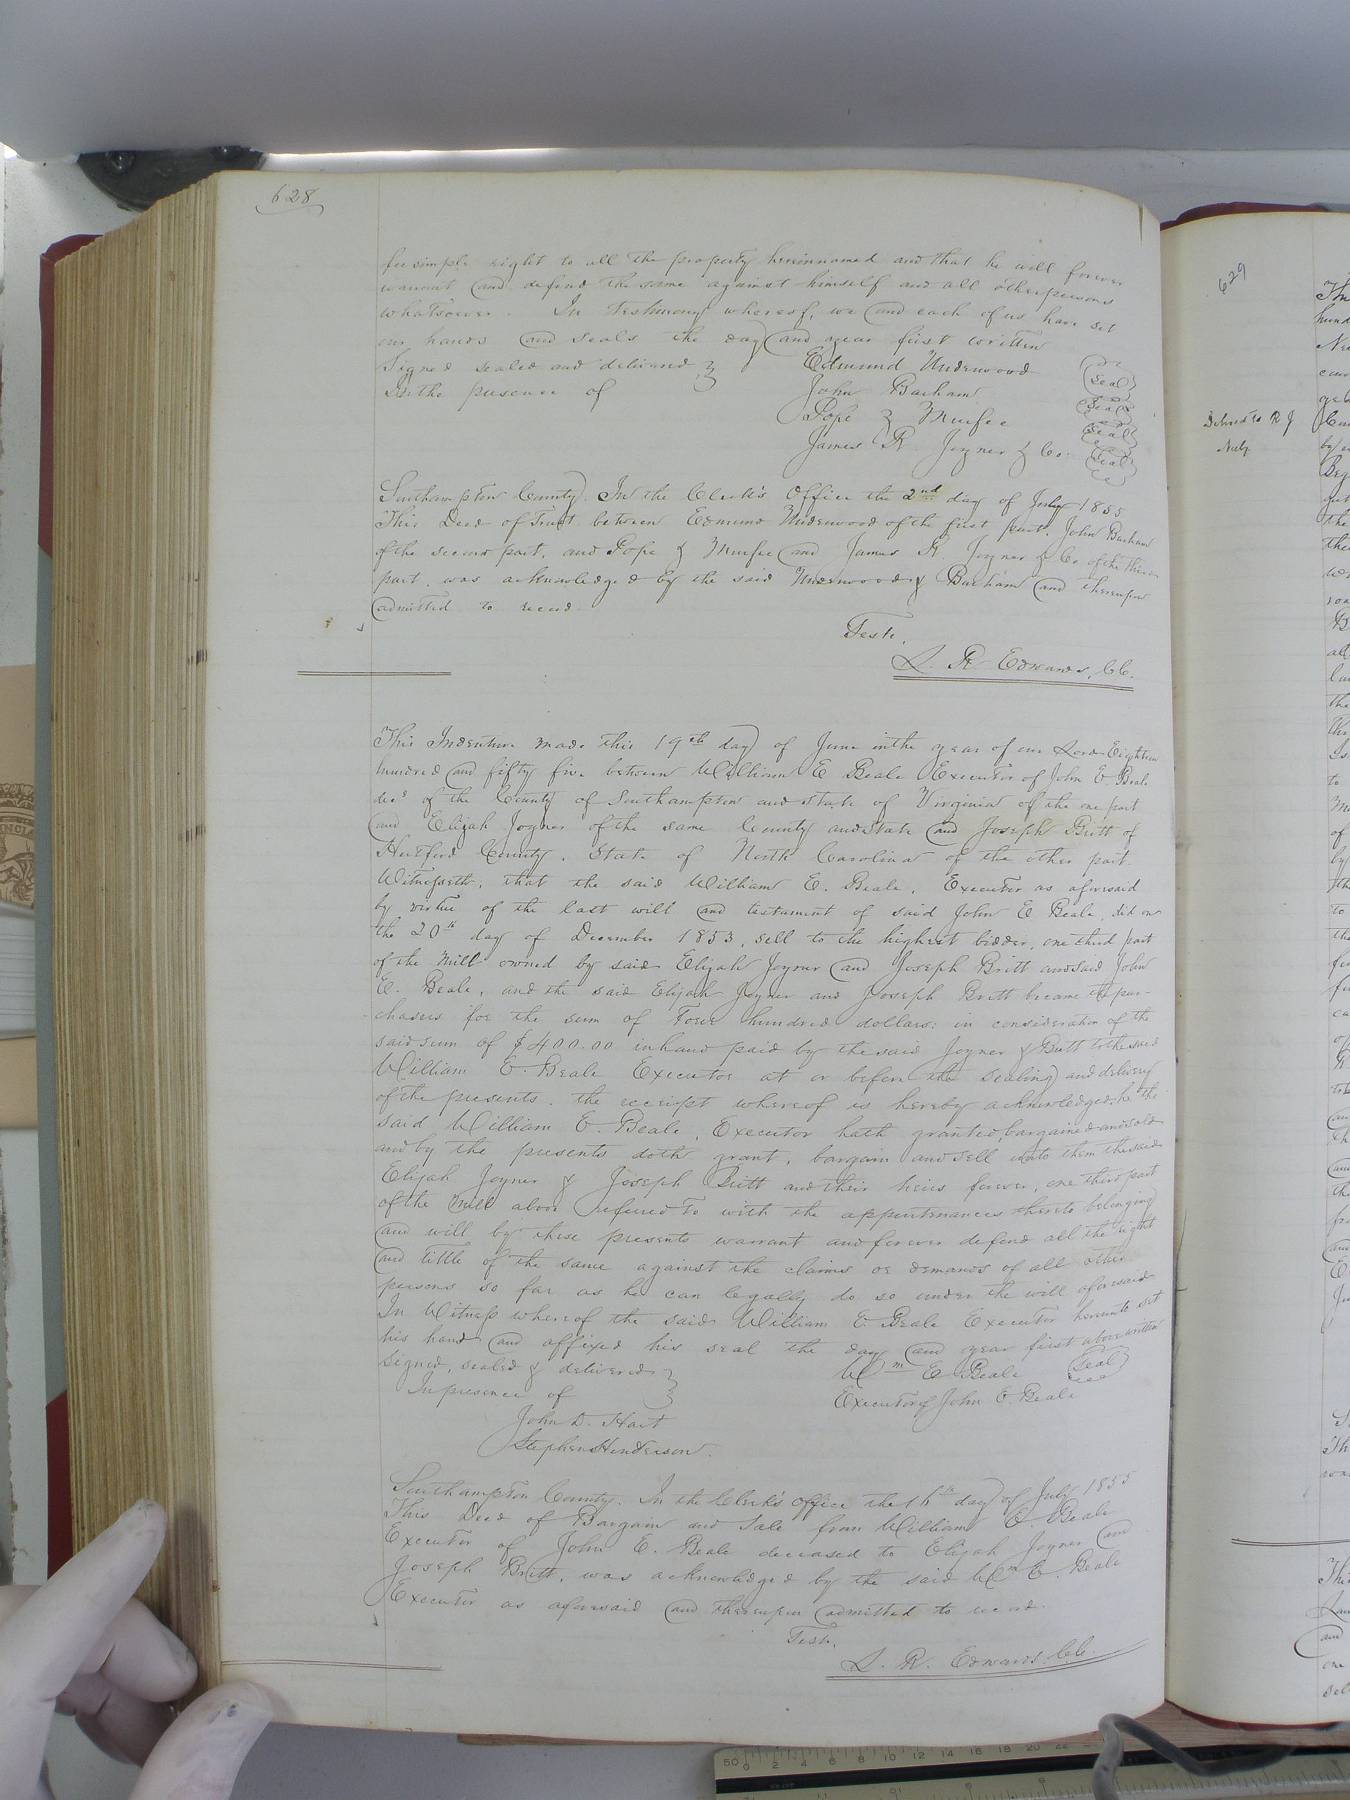 628
fee simple right to all the property hereinnamed and that he will forever
warrant and defend the same against himself and all other persons
whatsoever. In testimony whereof, we and each of us have set
our hands and seals the day and year first written
Signed sealed and delivered
In the presence of
Edmund Underwood Seal
John Barham Seal
Pope & Murfee Seal
James R. Joyner & Co. Seal
Southampton County. In the Clerk's Office the 2nd day of July 1855
This Deed of Trust between Edmund Underwood of the first part, John Barham
of the second part, and Pope & Murfee and James R. Joyner & Co of the third
part, was acknowledged by the said Underwood & Barham and thereupon
admitted to record.
Teste,
L. R. Edwards, CC.
This Indenture made this 19th day of June in the year of our Lord Eighteen
hundred and fifty five between William E Beale Executor of John E Beale
decd of the County of Southampton and state of Virginia of the one part
and Elijah Joyner of the same County and State and Joseph Britt of
Hertford County, State of North Carolina of the other part
Witnesseth, that the said William E. Beale, Executor as aforesaid
by virtue of the last will and testament of said John E Beale, did on
the 20th day of December 1853, sell to the highest bidder, one third part
of the Mill owned by said Elijah Joyner and Joseph Britt and said John
E. Beale, and the said Elijah Joyner and Joseph Britt became the pur-
chasers for the sum of Four hundred dollars: in consideration of the
said sum of $400.00 in hand paid by the said Joyner & Britt to the said
William E. Beale Executor at or before the sealing and delivery
of the presents. the receipt whereof is hereby acknowledged, he the
said William E. Beale, Executor hath granted, bargained and sold
and by the presents doth grant, bargain and sell unto them the said
Elijah Joyner & Joseph Britt and their heirs forever, one third part
of the mill above referred to with the appurtenances thereto belonging
and will by these presents warrant and forever defend all the right
and title of the same against the claims or demands of all other
persons so far as he can legally do so under the will aforesaid
In Witness whereof the said William E. Beale Executor hereunto set
his hand and affixed his seal the day and year first above written
Signed, sealed & delivered
In presence of
Wm E Beale Seal
Executor of John E. Beale
John D. Hart
Stephen Henderson.
Southampton County. In the Clerk's Office the 16th day of July 1855
This Deed of Bargain and Sale from William E. Beale
Executor of John E. Beale deceased to Elijah Joyner and
Joseph Britt, was acknowledged by the said Wm E. Beale
Executor as aforesaid and thereupon admitted to record.
Teste,
L. R. Edwards, CC.
629